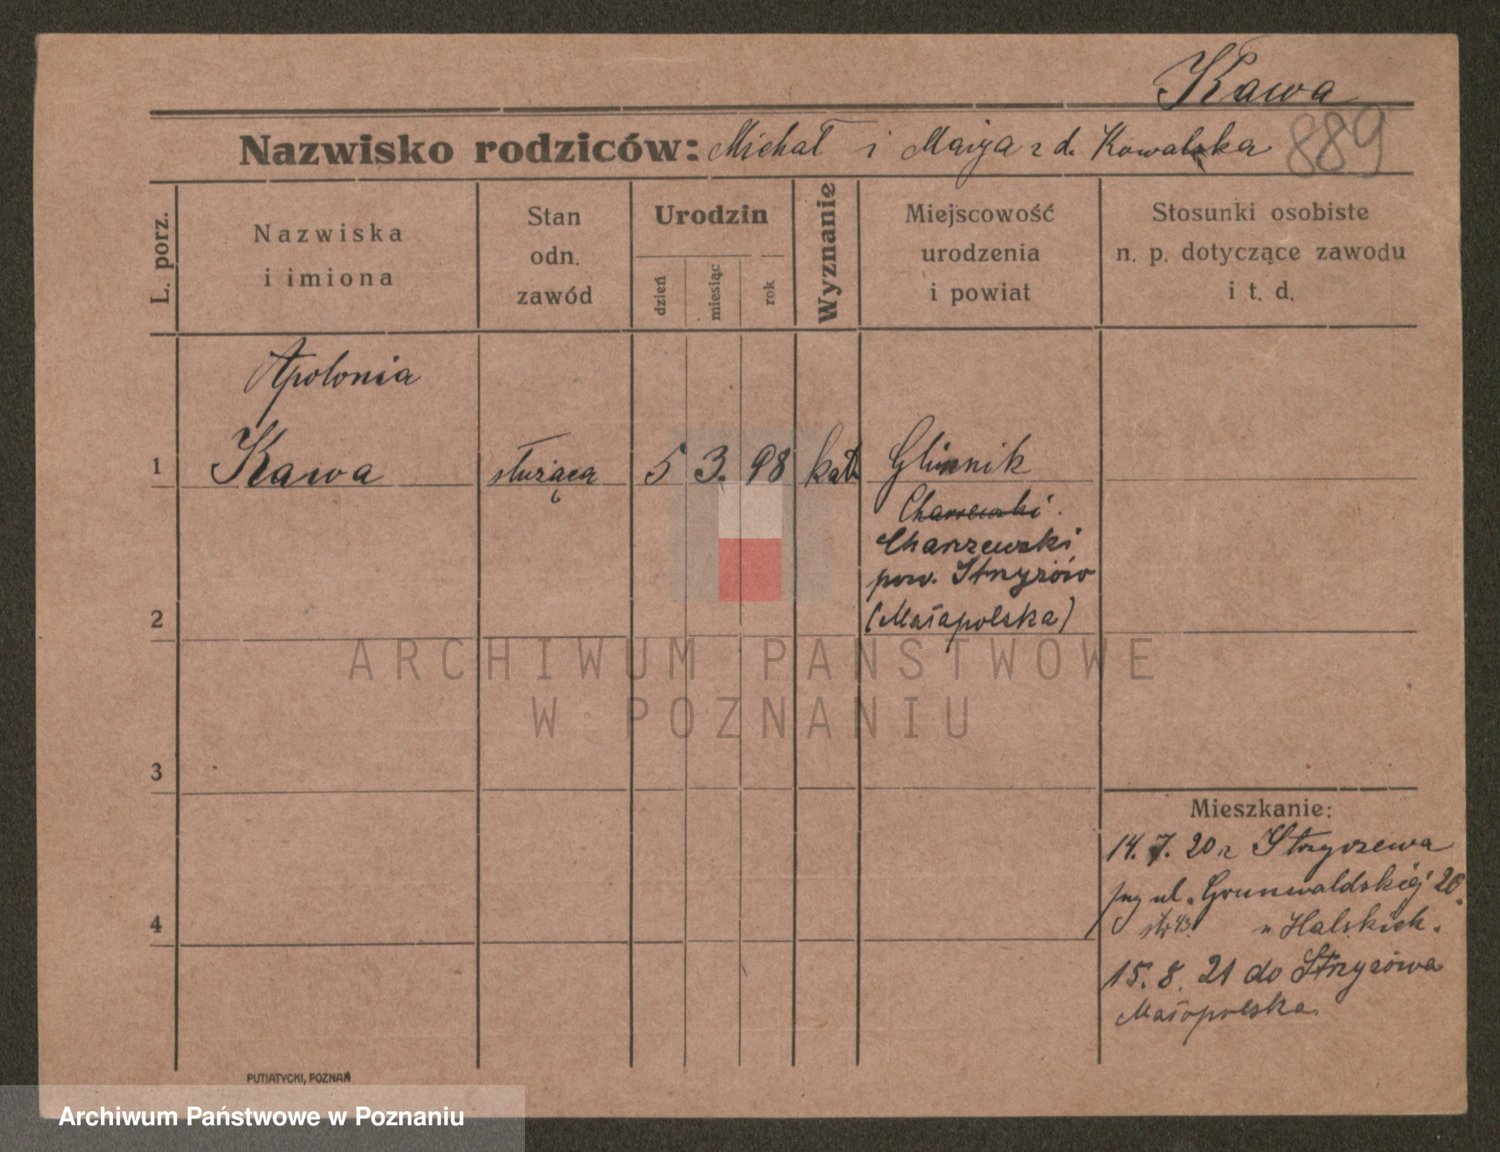 Kawa
889
Nazwisko rodziców: Michał i Marja z d. Kowalska
L. porz.
Nazwiska
i imiona
Stan
odn.
zawód
Urodzin
dzień
miesiąc
rok
Wyznanie
Miejscowość
urodzenia
i powiat
Stosunki osobiste
n. p. dotyczące zawodu
i t. d.
Apolonia
1 Kawa służąca 5 3. 98 kat. Glinnik
Charzewski
pow. Strzyżów
2 (Małapolska)
ARCHIWUM PAŃSTWOWE
W POZNANIU
3
Mieszkanie:
14. 7. 20 z Strzyżewa
przy ul. Grunwaldskiej 20.
u Halskich.
4
15. 8. 21 do Strzyżowa
Małopolska.
PUTIATYCKI, POZNAŃ
Archiwum Państwowe w Poznaniu